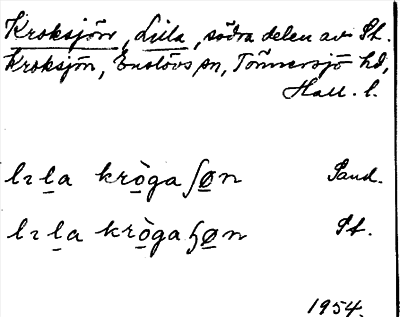 Kroksjön, Lilla, södra delen av St.
Kroksjön, Enslövs sn, Tönnersjö hd,
Hall. l.
lɩla kròga ʃøn Sand.
lɩla kròga ɧøn St.
1954.